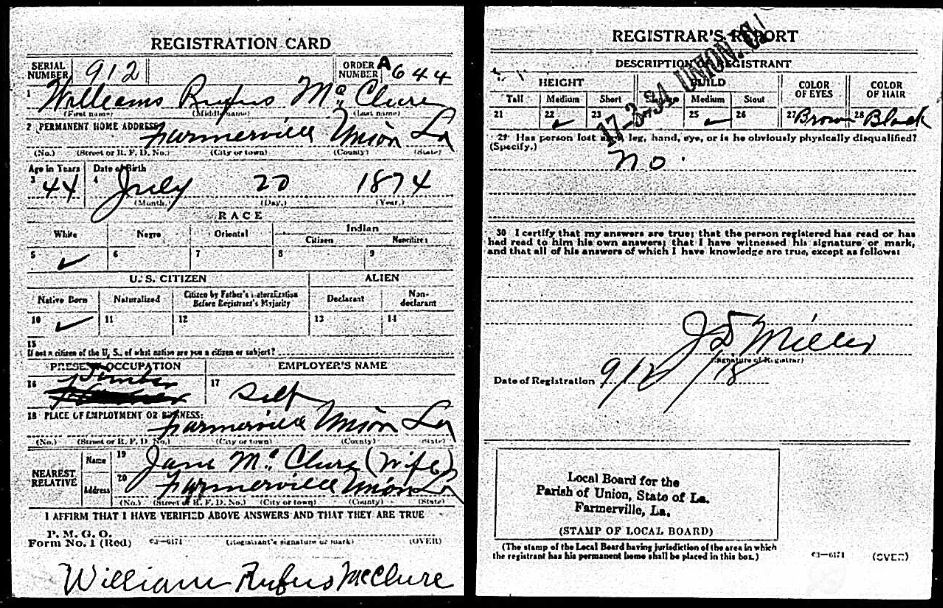 REGISTRATION CARD
SERIAL NUMBER 912 ORDER NUMBER A 644
1 Williams Rufus Mc Clure
(First name) (Middle name) (Last name)
2 PERMANENT HOME ADDRESS: Farmerville Union La
(No.) (Street or R. F. D. No.) (City or town) (County) (State)
Age in Years Date of Birth
3 44 4 July 20 1874
(Month.) (Day.) (Year.)
RACE
White Negro Oriental Indian
Citizen Noncitizen
5 ✓ 6 7 8 9
U. S. CITIZEN ALIEN
Native Born Naturalized Citizen by Father's Naturalization Before Registrant's Majority Declarant Non-declarant
10 ✓ 11 12 13 14
15
If not a citizen of the U. S., of what nation are you a citizen or subject?
PRESENT OCCUPATION EMPLOYER'S NAME
16 17 Self
18 PLACE OF EMPLOYMENT OR BUSINESS:
Farmerville Union La
(No.) (Street or R. F. D. No.) (City or town) (County) (State)
NEAREST RELATIVE
Name 19 Jane Mc Clure (wife)
Address 20 Farmerville Union La
(No.) (Street or R. F. D. No.) (City or town) (County) (State)
I AFFIRM THAT I HAVE VERIFIED ABOVE ANSWERS AND THAT THEY ARE TRUE
P. M. G. O.
Form No. 1 (Red) 03—6171 (Registrant's signature or mark) (OVER)
William Rufus McClure
REGISTRAR'S REPORT
17-3-34 UNION, C.
DESCRIPTION OF REGISTRANT
HEIGHT BUILD COLOR OF EYES COLOR OF HAIR
Tall Medium Short Medium Stout
21 22 ✓ 23 25 ✓ 26 27 Brown 28 Black
29 Has person lost arm, leg, hand, eye, or is he obviously physically disqualified?
(Specify.) no.
30 I certify that my answers are true; that the person registered has read or has
had read to him his own answers; that I have witnessed his signature or mark,
and that all of his answers of which I have knowledge are true, except as follows:
Miller
(Signature of Registrar)
Date of Registration 9/12/18
Local Board for the
Parish of Union, State of La.
Farmerville, La.
(STAMP OF LOCAL BOARD)
(The stamp of the Local Board having jurisdiction of the area in which
the registrant has his permanent home shall be placed in this box.)
03—6171 (OVER)